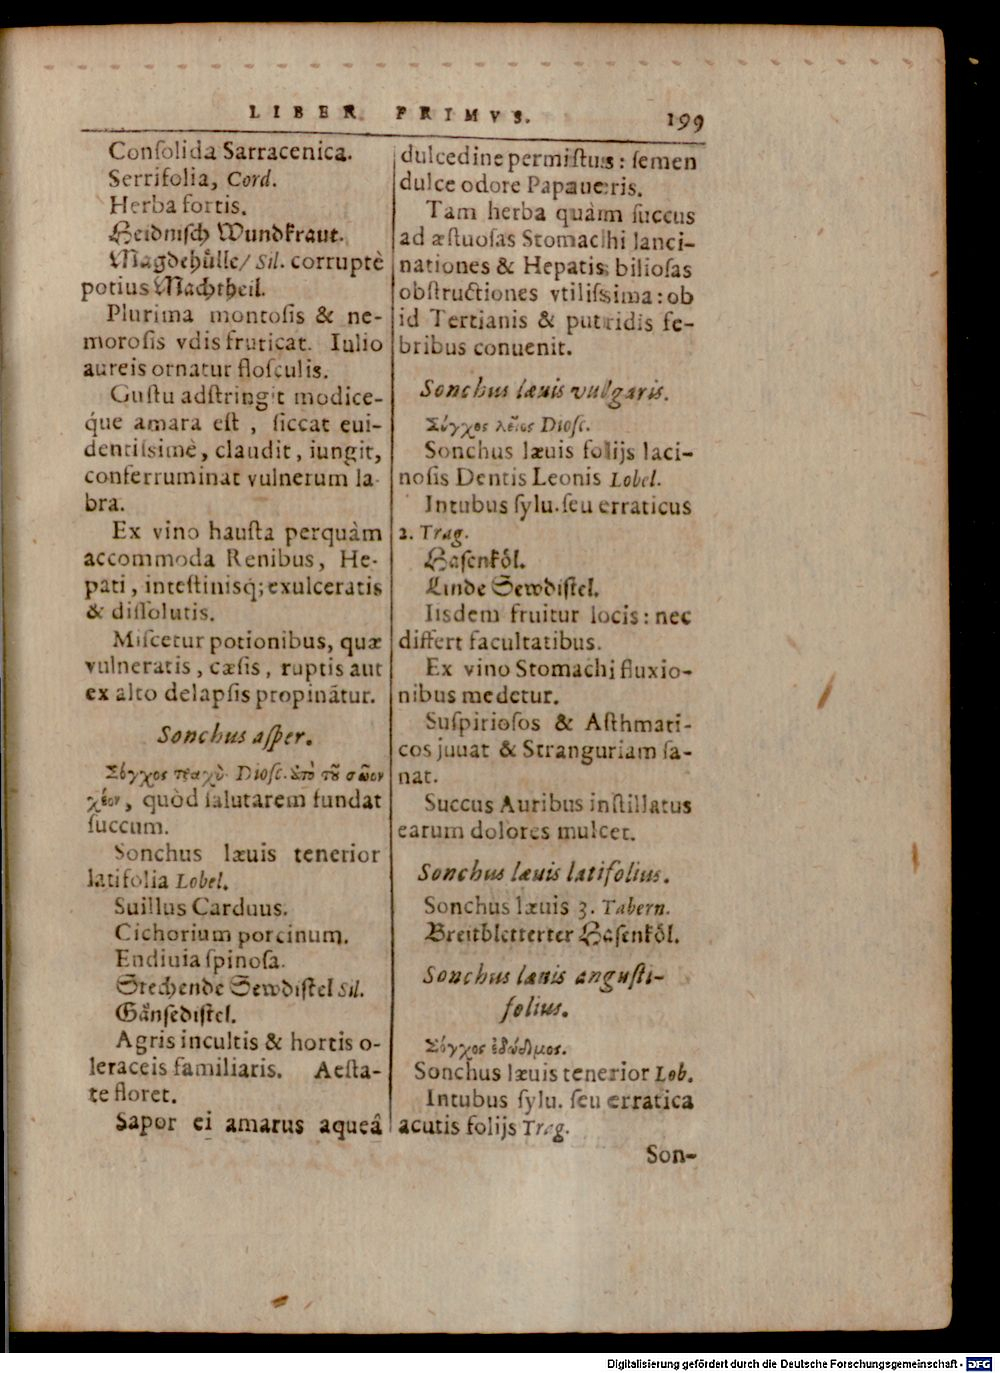 LIBER PRIMVS. 199
Conſolida Sarracenica.
Serrifolia, Cord.
Herba fortis.
Heidniſch Wundkraut.
Magdehülle/ Sil. corruptè
potius Machtheil.
Plurima montoſis & ne-
moroſis vdis fruticat. Iulio
aureis ornatur floſculis.
Guſtu adſtringit modice-
q́ue amara eſt, ſiccat eui-
dentiſsimè, claudit, iungit,
conferruminat vulnerum la-
bra.
Ex vino hauſta perquàm
accommoda Renibus, He-
pati, inteſtinisq́; exulceratis
& diſſolutis.
Miſcetur potionibus, quæ
vulneratis, cæſis, ruptis aut
ex alto delapſis propinātur.
Sonchus aſper.
Σόγχος τραχὺ Dioſc. ἀπὸ τοῦ σῶον
χέον, quòd ſalutarem fundat
ſuccum.
Sonchus læuis tenerior
latifolia Lobel.
Suillus Carduus.
Cichorium porcinum.
Endiuia ſpinoſa.
Stechende Sewdiſtel Sil.
Gänſediſtel.
Agris incultis & hortis o-
leraceis familiaris. Aeſta-
te floret.
Sapor ei amarus aqueâ
dulcedine permiſtus: ſemen
dulce odore Papaueris.
Tam herba quàm ſuccus
ad æſtuoſas Stomachi lanci-
nationes & Hepatis bilioſas
obſtructiones vtiliſsima: ob
id Tertianis & putridis fe-
bribus conuenit.
Sonchus læuis vulgaris.
Σόγχος λεῖος Dioſc.
Sonchus læuis folijs laci-
noſis Dentis Leonis Lobel.
Intubus ſylu. ſeu erraticus
2. Trag.
Haſenköl.
Linde Sewdiſtel.
Iisdem fruitur locis: nec
differt facultatibus.
Ex vino Stomachi fluxio-
nibus medetur.
Suſpirioſos & Aſthmati-
cos juuat & Stranguriam ſa-
nat.
Succus Auribus inſtillatus
earum dolores mulcet.
Sonchus læuis latifolius.
Sonchus læuis 3. Tabern.
Breitbletterter Haſenköl.
Sonchus læuis anguſti-
folius.
Σόγχος ἐδώδιμος.
Sonchus læuis tenerior Lob.
Intubus ſylu. ſeu erratica
acutis folijs Trag.
Son-
Digitalisierung gefördert durch die Deutsche Forschungsgemeinschaft - DFG